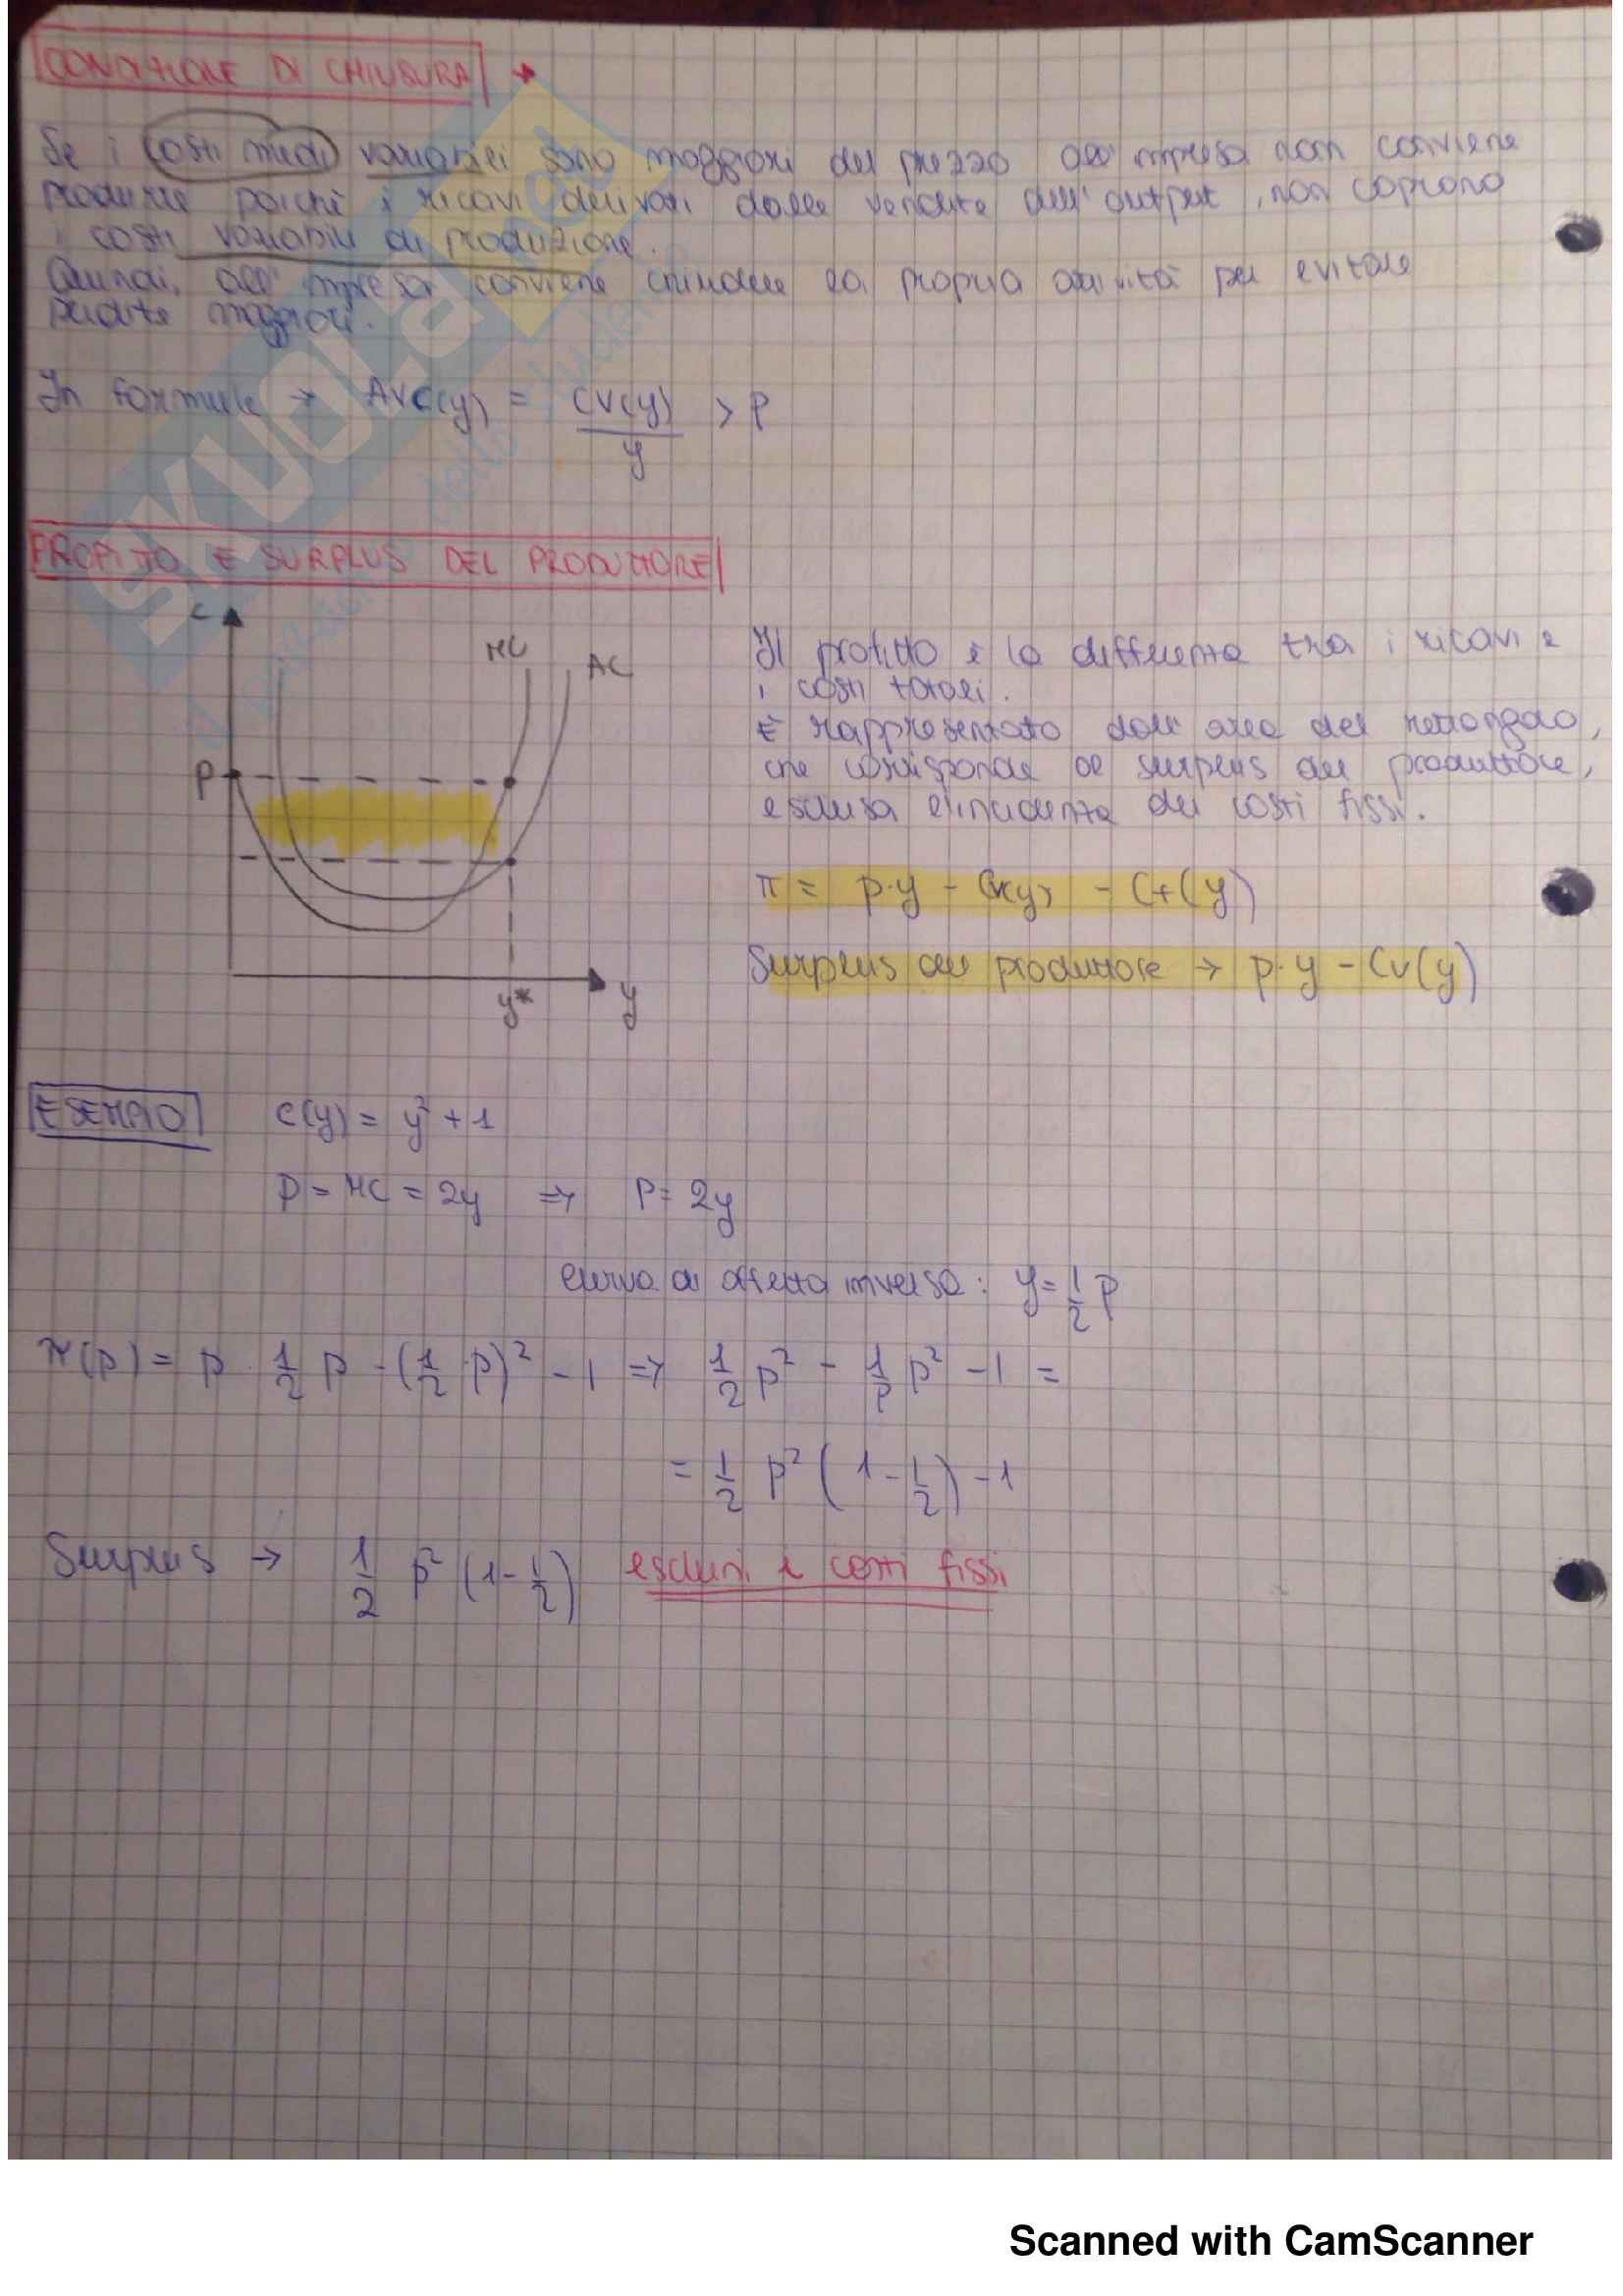 CONDIZIONE DI CHIUSURA →
Se i costi medi variabili sono maggiori del prezzo all'impresa non conviene
produrre poichè i ricavi derivati dalle vendite dell'output, non coprono
i costi variabili di produzione.
Quindi, all'impresa conviene chiudere la propria attività per evitare
perdite maggiori.
In formule → AVC(y) = CV(y)/y > P
PROFITTO E SURPLUS DEL PRODUTTORE
C
MC
AC
P
y*
y
Il profitto è la differenza tra i ricavi e
i costi totali.
È rappresentato dall'area del rettangolo,
che corrisponde al surplus del produttore,
esclusa l'incidenza dei costi fissi.
π = p·y - Cv(y) - Cf(y)
Surplus del produttore → p·y - Cv(y)
ESEMPIO
c(y) = y² + 1
P = MC = 2y ⇒ P = 2y
curva di offerta inversa: y = 1/2 p
π(p) = p · 1/2 p - (1/2 p)² - 1 ⇒ 1/2 p² - 1/P p² - 1 =
= 1/2 p² (1 - 1/2) - 1
Surplus → 1/2 p² (1 - 1/2) esclusi i costi fissi
SKUOLA
Scanned with CamScanner